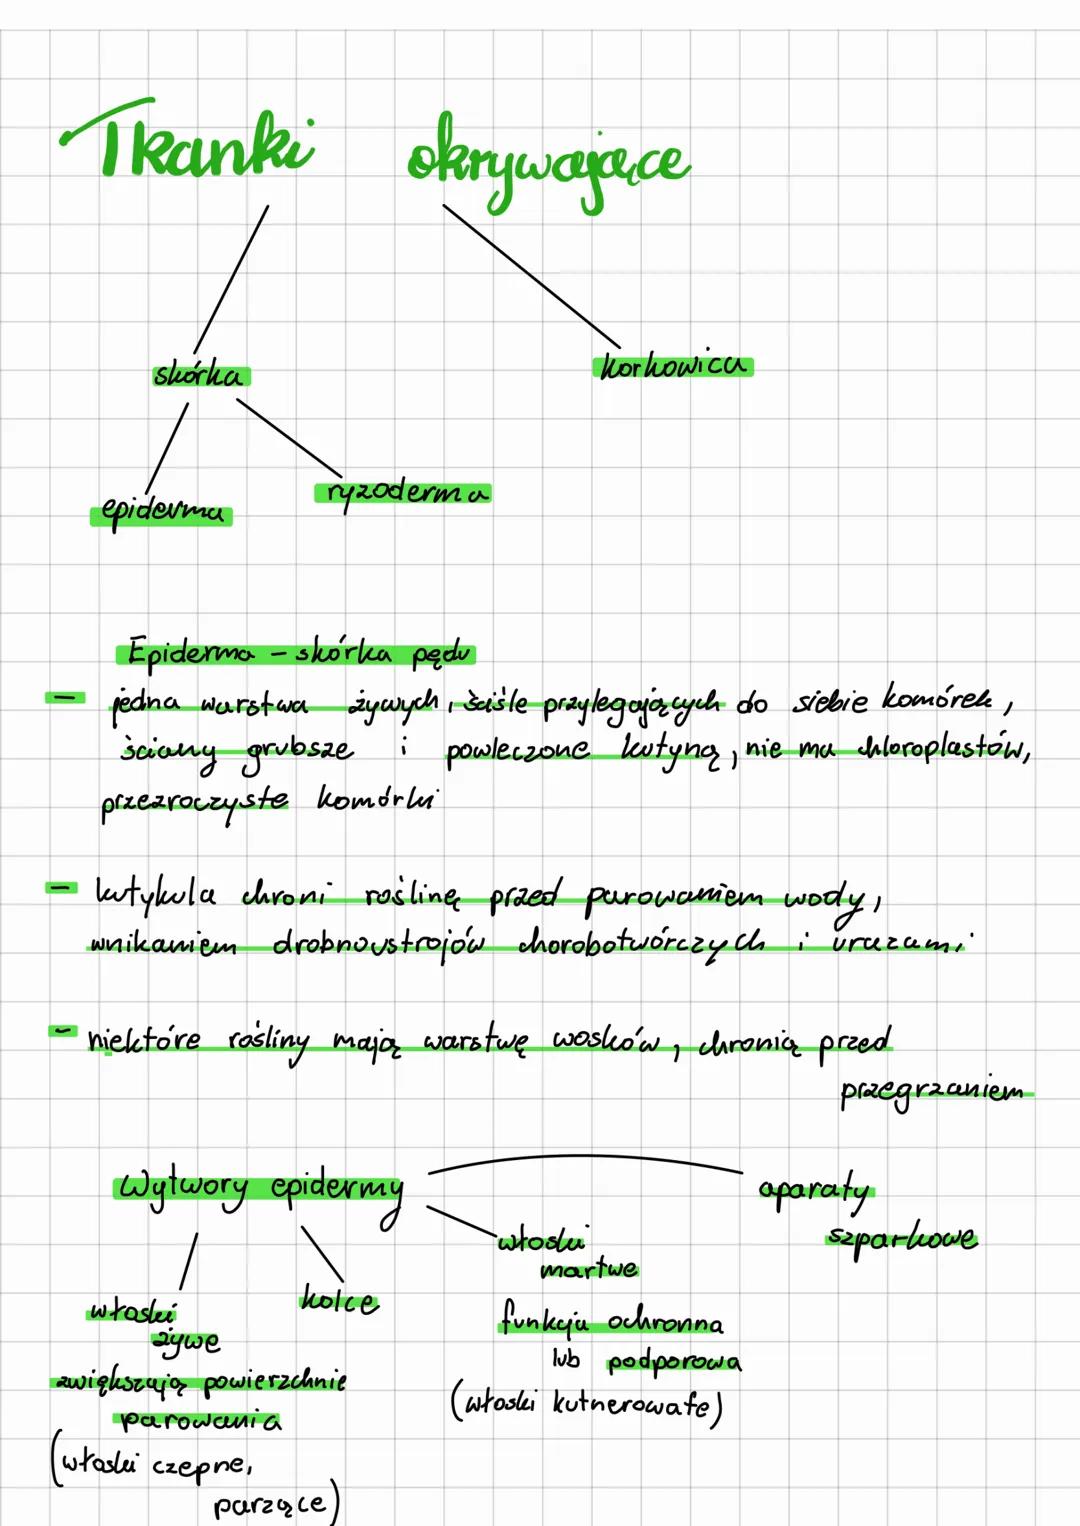 Tkanki okrywające
skórka
korkowica
epiderma
ryzoderma
Epiderma - skórka pędu
- jedna warstwa żywych, ściśle przylegających do siebie komórek,
ściany grubsze i powleczone kutyną, nie ma chloroplastów,
przezroczyste komórki
- kutykula chroni roślinę przed parowaniem wody,
wnikaniem drobnoustrojów chorobotwórczych i urazami
- niektóre rośliny mają warstwę wosków, chronią przed
przegrzaniem
Wytwory epidermy
aparaty
szparkowe
włoski
martwe
funkcja ochronna
lub podporowa
(włoski kutnerowate)
kolce
włoski
żywe
zwiększają powierzchnie
parowania
(włoski czepne,
parzące)